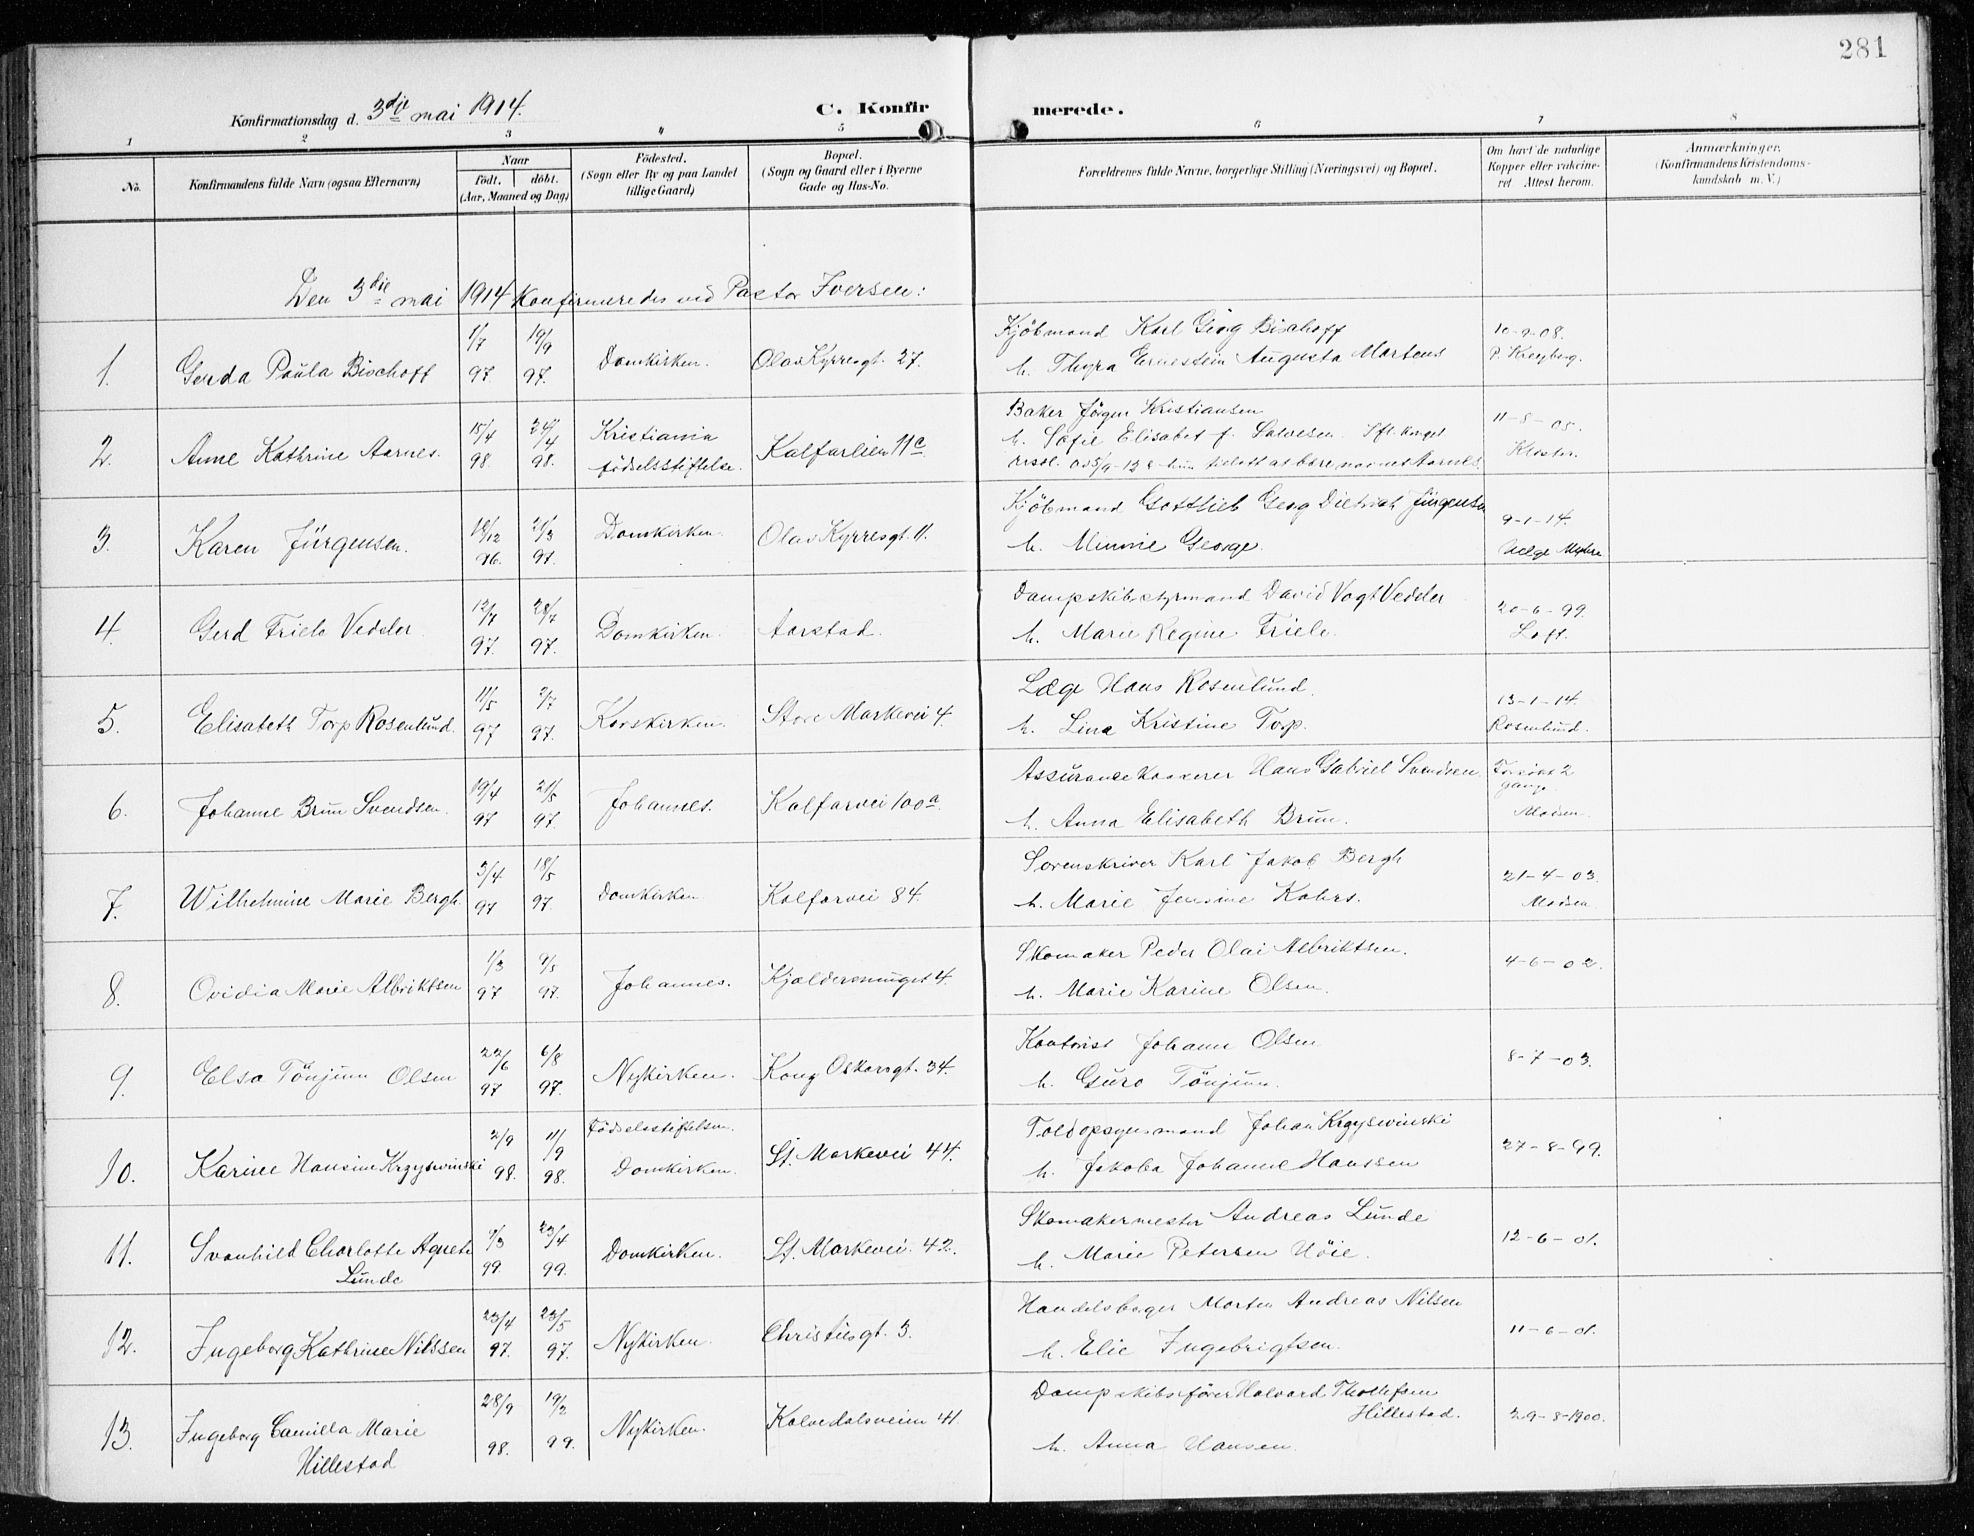 281
Konfirmationsdag d. 3die mai 1914.
C. Konfirmerede.
1 2 3 4 5 6 7 8
No.
Konfirmandens fulde Navn (ogsaa Efternavn)
Naar
født. døbt.
(Aar, Maaned og Dag)
Fødested.
(Sogn eller By og paa Landet
tillige Gaard)
Bopæl.
(Sogn og Gaard eller i Byerne
Gade og Hus-No.
Forældrenes fulde Navne, borgerlige Stilling (Næringsvei) og Bopæl.
Om havt de naturlige
Kopper eller vakcine-
ret. Attest herom.
Anmærkninger.
(Konfirmandens Kristendoms-
kundskab m. V.)
Den 3die mai 1914 Konfirmeredes ved Pastor Iversen:
1. Gerda Paula Bischoff
1/7 97. 19/9 97.
Domkirken.
Olav Kyrresgt. 27.
Kjøbmand Karl Georg Bischoff
h. Thyra Ernestein Augusta Martens
10-9-08.
P. Kreyberg.
2. Anne Kathrine Aarnes.
15/4 98. 24/4 98.
Kristiania
fødselsstiftelse.
Kalfarlien 11a
Baker Jörgen Kristiansen
h. Sofie Elisabet f. Salvesen.
navnet Aarnes.
11-8-05.
Kloster.
3. Karen Jürgensen.
18/12 96. 21/3 97.
Domkirken.
Olav Kyrresgt. 11.
Kjøbmand Gottlieb Georg Dietrich Jürgensen
h. Minnie George.
9-1-14.
Helge Myhre
4. Gerd Friele Vedeler.
12/7 97. 28/7 97.
Domkirken.
Aarstad.
Dampskibsstyrmand David Vogt Vedeler
h. Marie Regine Friele.
20-6-99.
Loft.
5. Elisabeth Torp Rosenlund.
11/5 97 2/7 97.
Korskirken.
Store Markevei 4.
Læge Hans Rosenlund.
h. Lina Kristine Torp.
13-1-14.
Rosenlund.
6. Johanne Brun Svendsen.
19/4 97 21/5 97.
Johannes.
Kalfarvei 100a.
Assurancekasserer Hans Gabriel Svendsen.
h. Anna Elisabeth Brun.
2
gange.
Madsen.
7. Wilhelmine Marie Bergh.
3/4 97 18/5 97.
Domkirken
Kalfarvei 84.
Sorenskriver Karl Jakob Bergh
h. Marie Jensine Kahrs.
21-4-03.
Madsen
8. Ovidia Marie Albriktsen
1/3 97 9/5 97.
Johannes.
Kjeldersmuget 4.
Skomaker Peder Olai Albriktsen.
h. Marie Karine Olsen.
4-6-02.
9. Elsa Tönjum Olsen
22/6 97 6/8 97.
Nykirken.
Kong Oskarsgt. 34.
Kontorist Johann Olsen
h. Guro Tönjum.
8-7-03.
10. Karine Hansine Krzyswinski
2/9 98. 11/9 98.
Fødselsstiftelsen.
Domkirken.
St. Markevei 44.
Toldopsynsmand Johan Krzyswinski
h. Jakoba Johanne Hanssen
27-8-99.
11. Svanhild Charlotte Agnete
Lunde
3/3 99. 23/4 99.
Domkirken.
St. Markevei. 42.
Skomakermester Andreas Lunde
h. Marie Petersen Höie.
12-6-01.
12. Ingeborg Kathrine Nilssen
23/4 97. 23/5 97.
Nykirken.
Christiesgt. 3.
Handelsborger Morten Andreas Nilsen
h. Elie Ingebrigtsen.
11-6-01.
13. Ingeborg Camilla Marie
Hillestad
28/9 98. 19/2 99.
Nykirken.
Kalvedalsveien 41.
Dampskibsfører Halvard Thollefsen
Hillestad.
h. Anna Hansen.
29-8-1900.